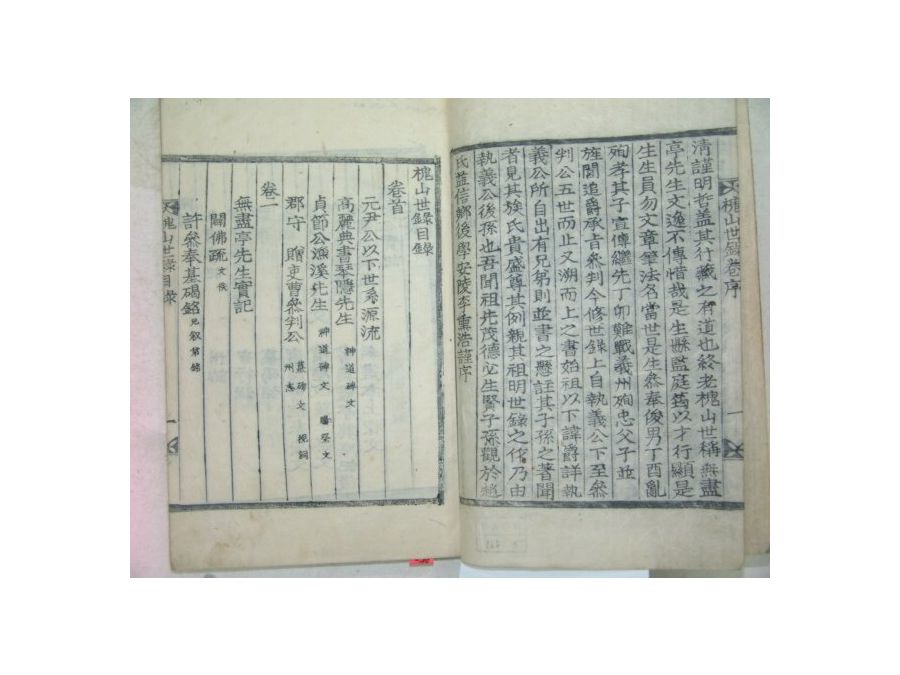 槐山世錄卷序
一
清謹明哲盖其行藏之有道也終老槐山世稱無盡
亭先生文逸不傳惜哉是生縣監庭筠以才行顯是
生生員勿文章筆法名當世是生參奉俊男丁酉亂
殉孝其子宣傳繼先丁卯難戰義州殉忠父子並
旌閭追爵承旨參判今修世錄上自執義公下至參
判公五世而止又溯而上之書始祖以下諱爵詳執
義公所自出有兄弟則並書之懸註其子孫之著聞
者見其族氏貴盛尊其例親其祖明世錄之作乃由
執義公後孫也吾聞祖先茂德必生賢子孫觀於趙
氏益信鄕後學安陵李重浩謹序
槐山世錄目錄
卷首
元尹公以下世系源流
高麗典書琴隱先生 神道碑文
貞節公漁溪先生 神道碑文
郡守 贈吏曹參判公 墓碑文 祝詞 州志
卷一
無盡亭先生實記
闢佛疏 文佚
許參奉基碣銘 兄叙弟銘
槐山世錄目錄
一